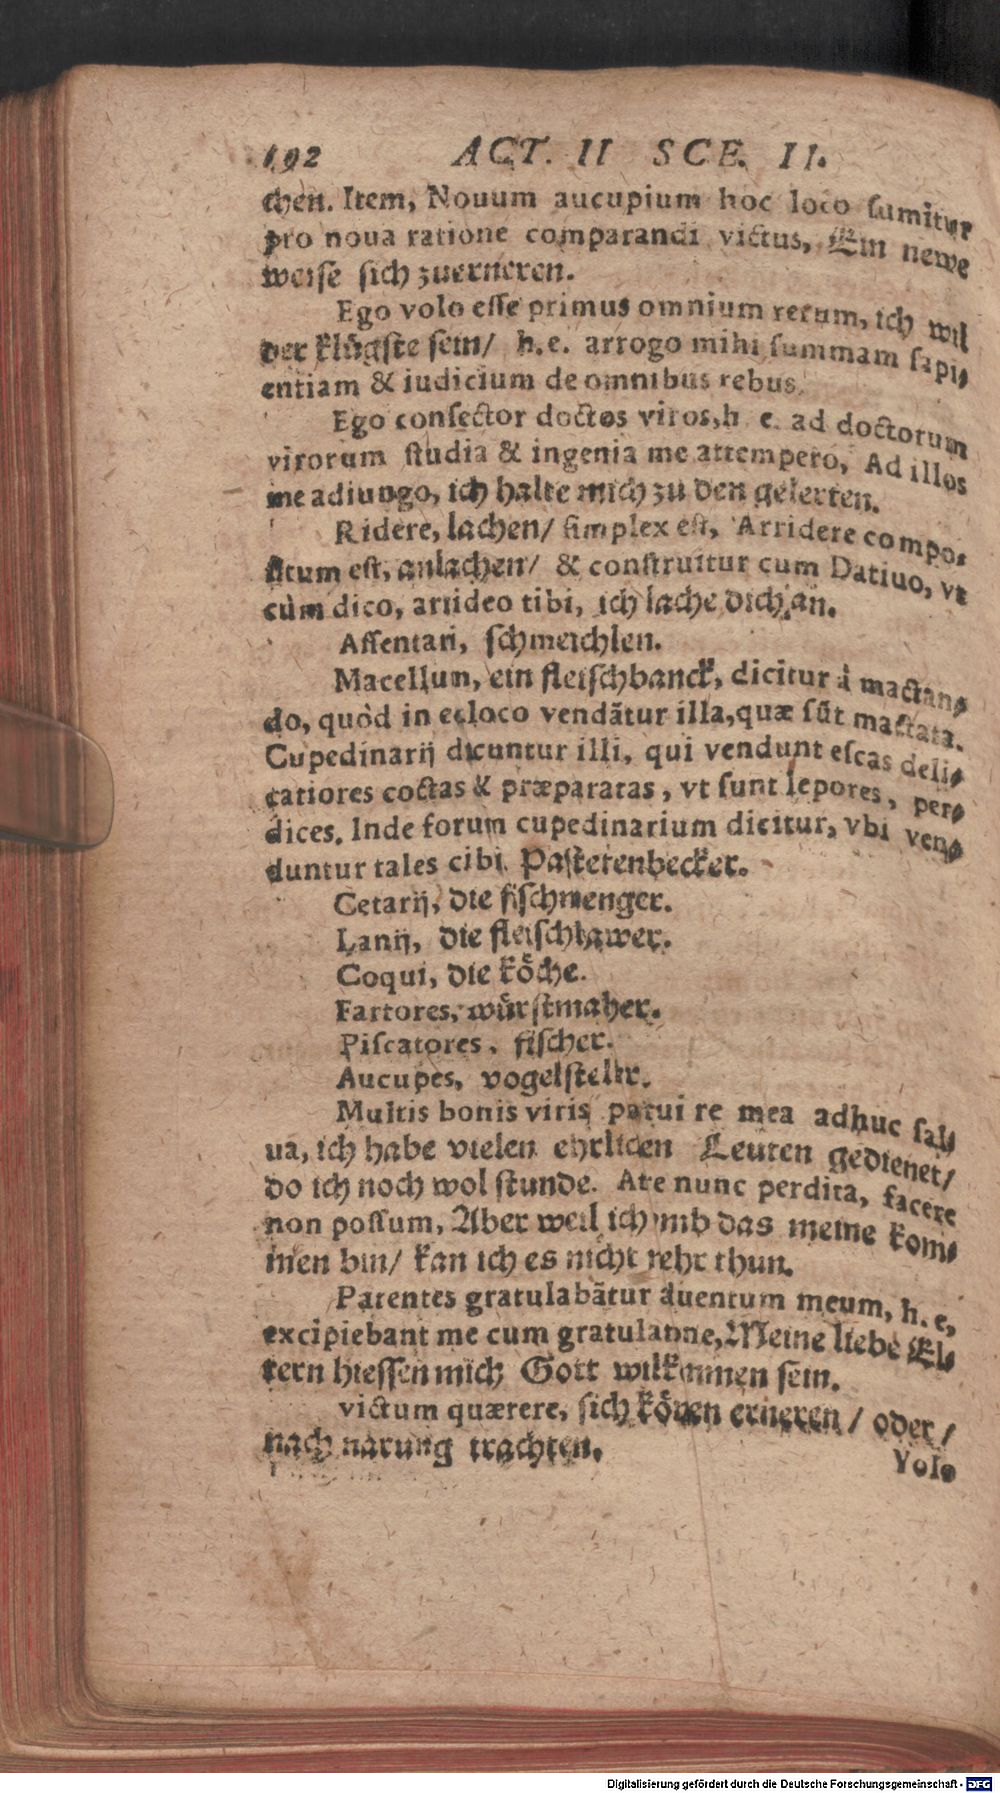 192 ACT. II SCE. II.
chen. Item, Nouum aucupium hoc loco ſumitur
pro noua ratione comparandi victus, Ein newe
weiſe ſich zuerneren.
Ego volo eſſe primus omnium rerum, ich wil
der klůgſte ſein/ h. e. arrogo mihi ſummam ſapi⸗
entiam & iudicium de omnibus rebus.
Ego conſector doctos viros, h. e. ad doctorum
virorum ſtudia & ingenia me attempero, Ad illos
me adiungo, ich halte mich zu den gelerten.
Ridere, lachen/ ſimplex eſt, Arridere compo⸗
ſitum eſt, anlachen/ & conſtruitur cum Datiuo, vt
cùm dico, arrideo tibi, ich lache dich an.
Aſſentari, ſchmeichlen.
Macellum, ein fleiſchbanck, dicitur à mactan⸗
do, quòd in eo loco vendãtur illa, quæ ſũt mactata.
Cupedinarij dicuntur illi, qui vendunt eſcas deli⸗
catiores coctas & præparatas, vt ſunt lepores, per⸗
dices. Inde forum cupedinarium dicitur, vbi ven⸗
duntur tales cibi. Paſtetenbecker.
Cetarij, die fiſchmenger.
Lanij, die fleiſchhawer.
Coqui, die kőche.
Fartores, wůrſtmaher.
Piſcatores, fiſcher.
Aucupes, vogelſteller.
Multis bonis viris patui re mea adhuc ſal⸗
ua, ich habe vielen ehrlichen Leuten gedienet/
do ich noch wol ſtunde. Ate nunc perdita, facere
non poſſum, Aber weil ich vmb das meine kom⸗
men bin/ kan ich es nicht mehr thun.
Parentes gratulabãtur aduentum meum, h. e.
excipiebant me cum gratulatione, Meine liebe El⸗
tern hieſſen mich Gott wilkommen ſein.
victum quærere, ſich kőnen erneren/ oder/
nach narung trachten.
Volo
Digitalisierung gefördert durch die Deutsche Forschungsgemeinschaft - DFG